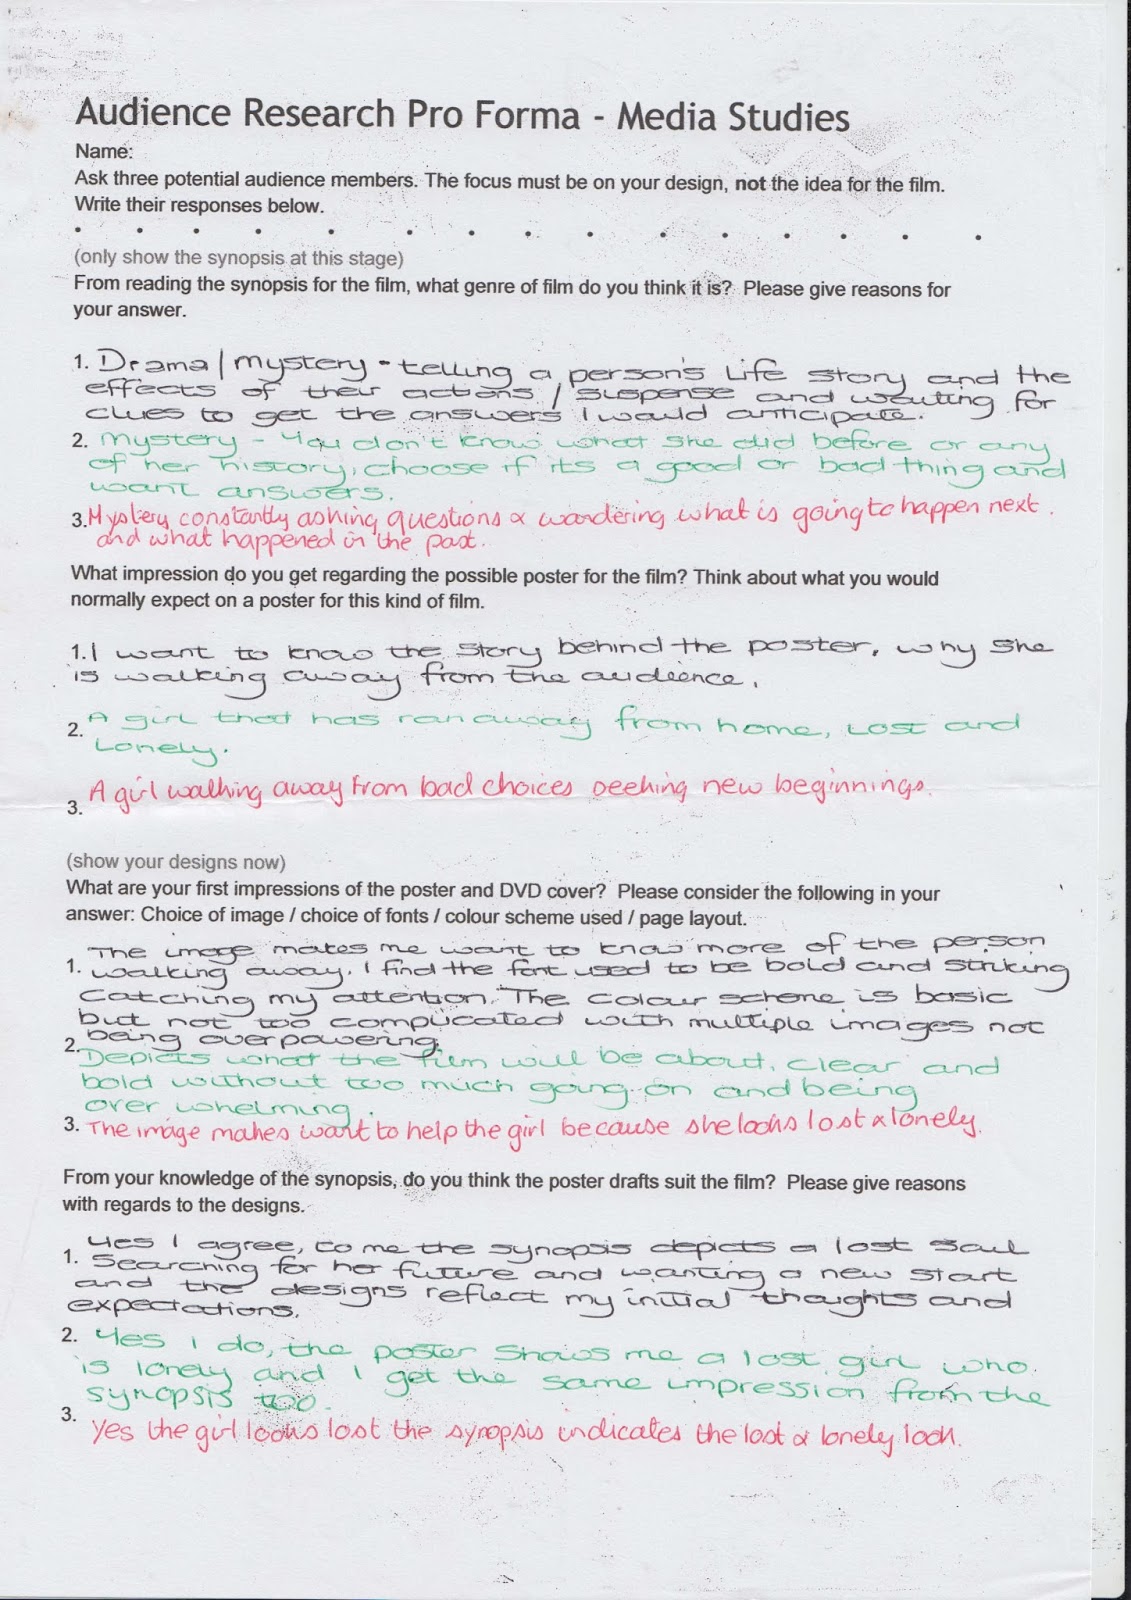 Audience Research Pro Forma - Media Studies
Name:
Ask three potential audience members. The focus must be on your design, not the idea for the film.
Write their responses below.
(only show the synopsis at this stage)
From reading the synopsis for the film, what genre of film do you think it is? Please give reasons for
your answer.
1. Drama/mystery - telling a person's life story and the
effects of their actions / suspense and waiting for
clues to get the answers I would anticipate.
2. Mystery - You don't know what she did before or any
of her history, choose if its a good or bad thing and
want answers.
3. Mystery constantly asking questions & wondering what is going to happen next.
and what happened in the past.
What impression do you get regarding the possible poster for the film? Think about what you would
normally expect on a poster for this kind of film.
1. I want to know the story behind the poster, why she
is walking away from the audience.
2. A girl that has ran away from home, lost and
lonely.
3. A girl walking away from bad choices seeking new beginnings.
(show your designs now)
What are your first impressions of the poster and DVD cover? Please consider the following in your
answer: Choice of image / choice of fonts / colour scheme used / page layout.
The image makes me want to know more of the person
1. walking away. I find the font used to be bold and striking
catching my attention. The colour scheme is basic
but not too complicated with multiple images not
being overpowering.
2. Depicts what the film will be about, clear and
bold without too much going on and being
over whelming.
3. The image makes want to help the girl because she looks lost & lonely.
From your knowledge of the synopsis, do you think the poster drafts suit the film? Please give reasons
with regards to the designs.
Yes I agree, to me the synopsis depicts a lost soul
1. Searching for her future and wanting a new start
and the designs reflect my initial thoughts and
expectations.
2. Yes I do, the poster shows me a lost girl who
is lonely and I get the same impression from the
synopsis too.
3. Yes the girl looks lost the synopsis indicates the lost & lonely look.